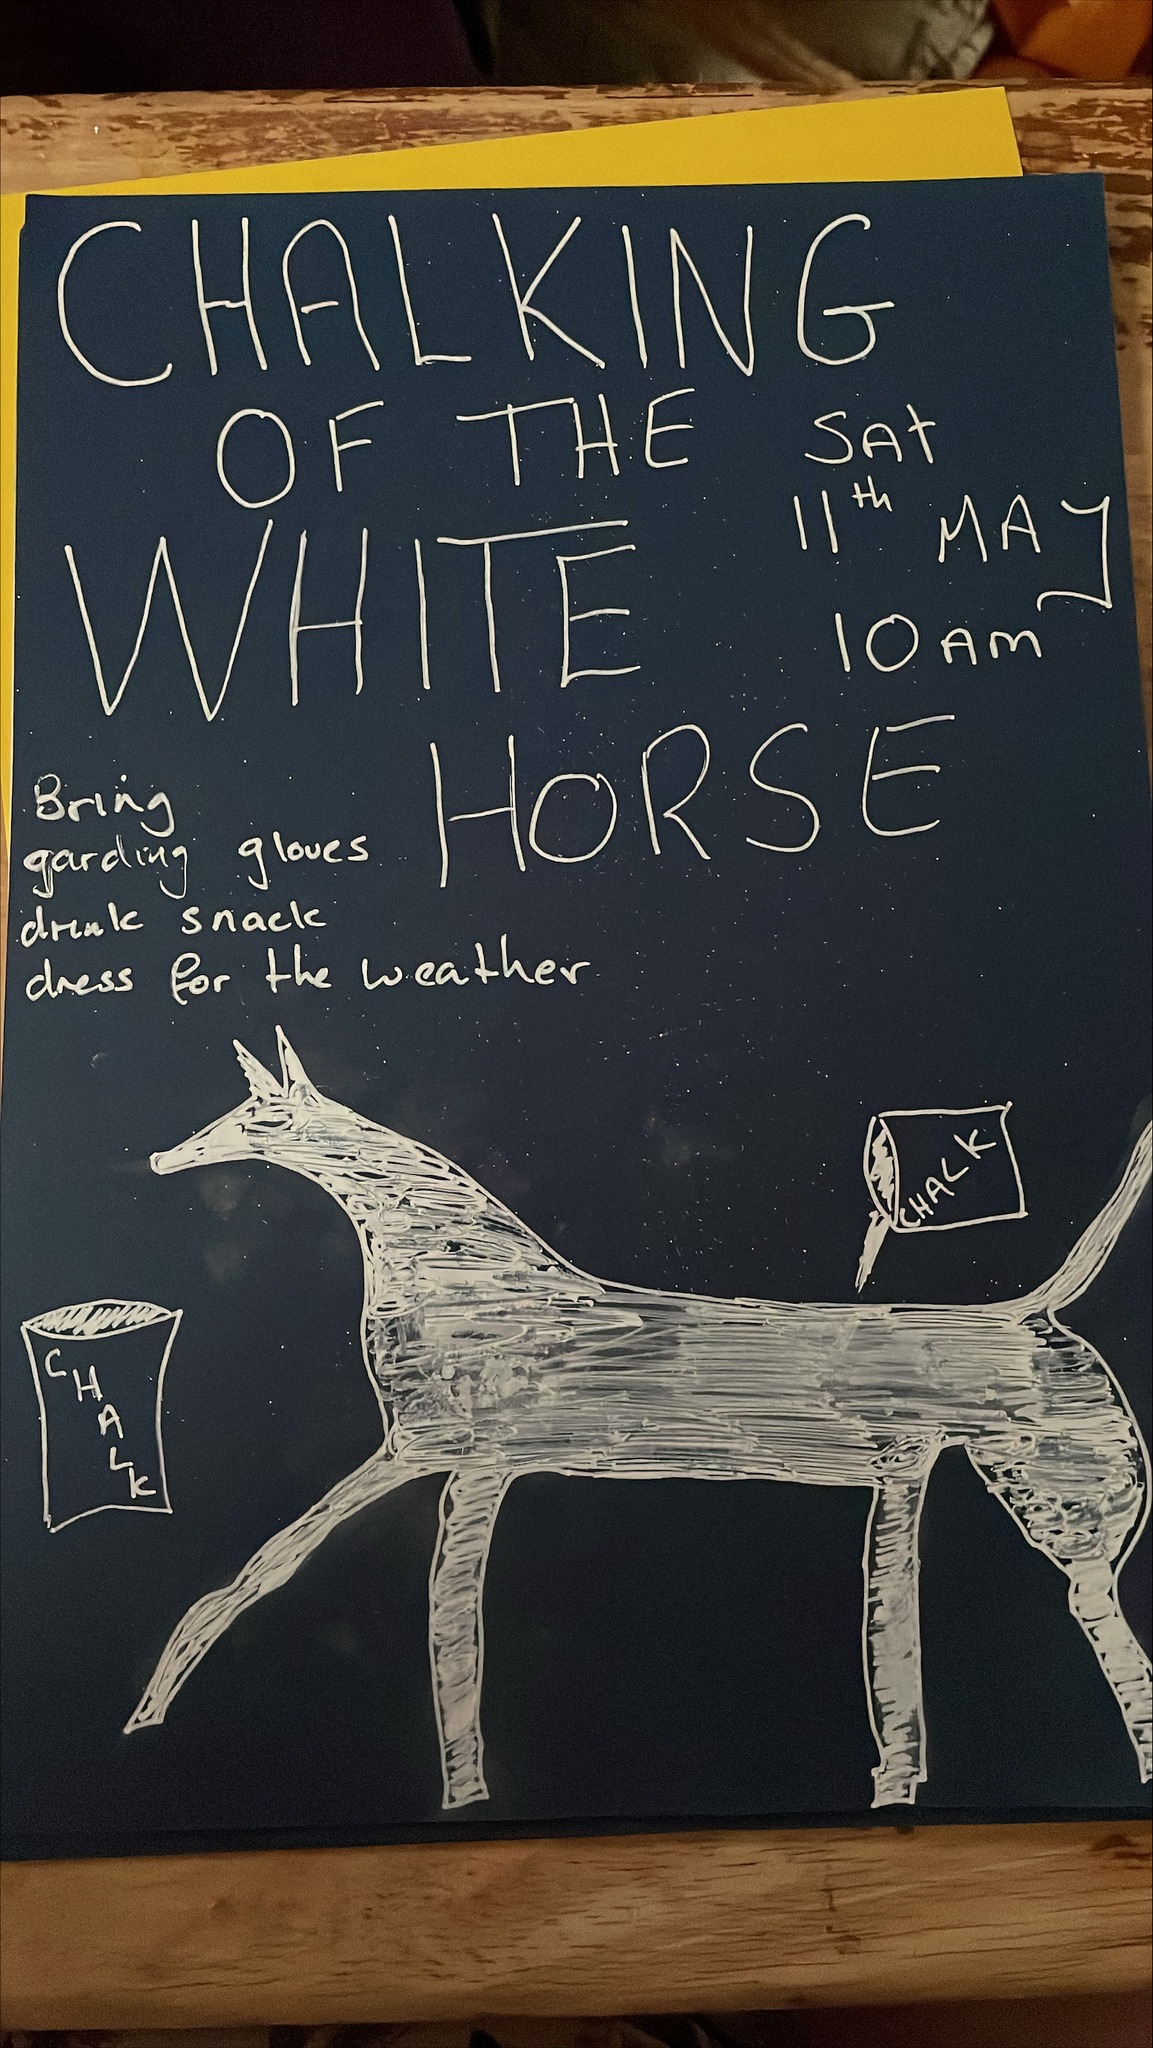 CHALKING
OF THE
WHITE
HORSE
SAt
11th MAY
10AM
Bring
garding gloves
drink snack
dress for the weather
CHALK
CHALK